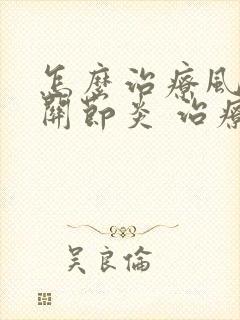 怎麼治療風
關節炎 治療
吳良倫